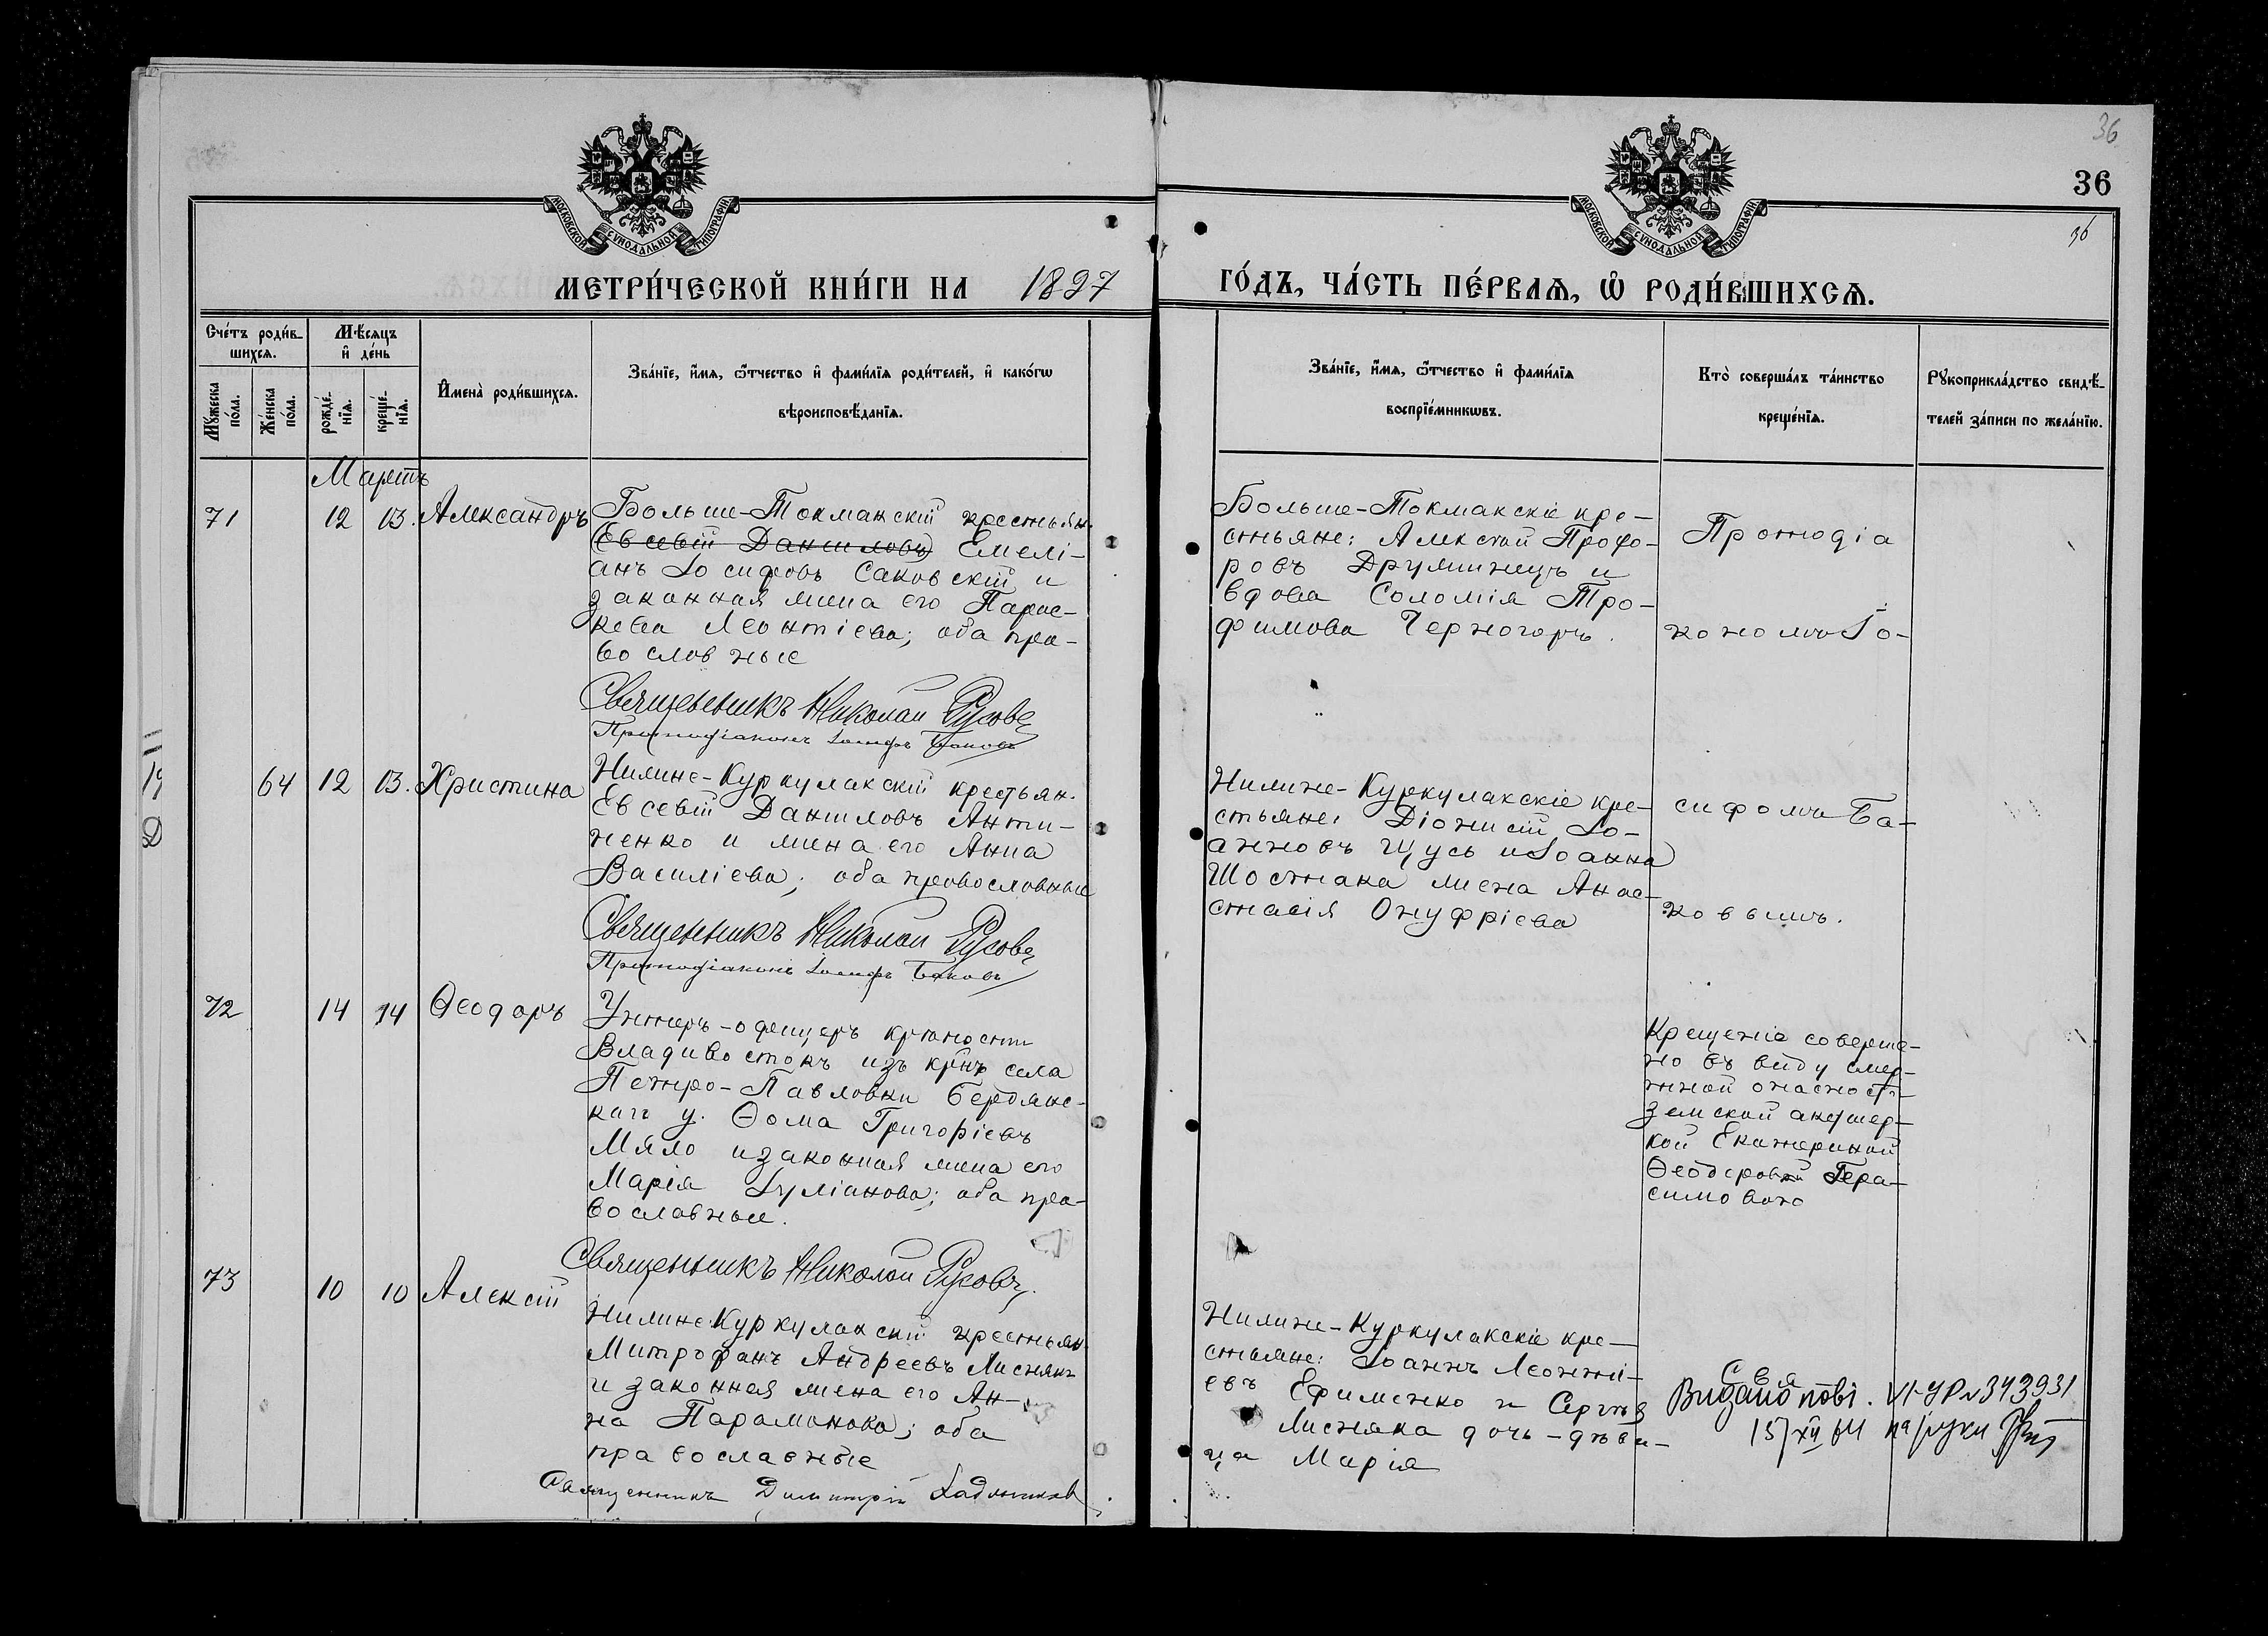 36
36
36
МОСКОВСКОЙ СѴНОДАЛЬНОЙ ТИПОГРАФІИ
МОСКОВСКОЙ СѴНОДАЛЬНОЙ ТИПОГРАФІИ
МЕТРИ́ЧЕСКОЙ КНИ́ГИ НА 1897
ГО́ДЪ, ЧА́СТЬ ПЕ́РВАѦ, Ѡ҆ РОДИ́ВШИХСѦ.
Сче́тъ роди́в-
шихсѧ.
Мѣ́сѧцъ
и҆ де́нь
Мꙋ́жеска
по́ла.
Же́нска
по́ла.
рожде́-
нїѧ.
креще́-
нїѧ.
И҆мена̀ роди́вшихсѧ.
Зва́нїе, и҆́мѧ, ѻ҆́тчество и҆ фами́лїѧ роди́телей, и҆ како́гѡ
вѣроисповѣ́данїѧ.
Зва́нїе, и҆́мѧ, ѻ҆́тчество и҆ фами́лїѧ
воспрїе́мникѡвъ.
Кто̀ соверша́лъ та́инство
креще́нїѧ.
Рꙋкоприкла́дство свидѣ́-
телей за́писи по жела́нїю.
Мартъ
71 12 13. Александръ
Больше-Токмакскій крестьян.
(Евсевій Даниловъ) Емелі-
анъ Іосифовъ Саковскій и
законная жена его Парас-
кева Леонтіева; оба пра-
вославные
Священникъ Николай Русовъ
Протодіаконъ Іосифъ Баковъ
Больше-Токмакскіе кре-
стьяне: Алексій Профо-
ровъ Друшинецъ и
вдова Соломія Тро-
фимова Черногоръ.
Протодіа
кономъ Іо-
64 12 13. Христина
Нижне-Куркулакскій крестьян.
Евсевій Даниловъ Анти-
ненко и жена его Анна
Василіева; оба православные
Священникъ Николай Русовъ
Протодіаконъ Іосифъ Баковъ
Нижне-Куркулакскіе кре-
стьяне: Діонисій Іо-
анновъ Щусь и Іоанна
Шостака жена Анас-
стасія Онуфріева
сифомъ Ба-
ковымъ.
72 14 14 Ѳеодоръ
Унтеръ-офицеръ крѣпости
Владивостокъ изъ крнъ села
Петро-Павловки Бердянс-
каго у. Ѳома Григоріевъ
Мяло и законная жена его
Марія Іуліанова; оба пра-
вославные.
Священникъ Николай Русовъ.
Крещеніе соверше-
но въ виду смер-
тной опасности
земской акушер-
кой Екатериной
Ѳеодоровой Гера-
симовою
73 10 10 Алексій
Нижне-Куркулакскій крестьян.
Митрофанъ Андреевъ Лиснякъ
и законная жена его Ан-
на Парамонова; оба
православные
Священникъ Димитрій
Нижне-Куркулакскіе кре-
стьяне: Іоаннъ Леонті-
евъ Ефименко и Сергѣя
Лисняка дочь-дѣви-
ца Марія
Свя
Видано пові. VI-УР №343931
15/XII 64 на руки